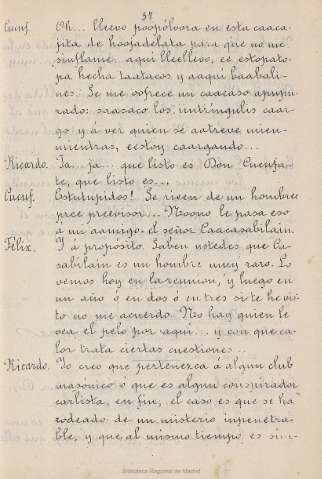 37
Cucuf. Oh... llevo poopólvora en esta caaca-
jita de hoojadelata para que no me
sinflame: aquí lleellevo, ee estopato-
pa hecha taatacos y aaquí baabali-
nes. Se me oofrece un caacaso apupu-
rado: saasaco los intríngulis caar-
go y á ver quien se aatreve mien-
mientras, eestoy caargando...
Ricardo. Ja... ja... que listo es Don Cucufa-
te, que listo es...
Cucuf. Estutupidos! Se riieen de un hombre
pree preevisor... Noono le pasa eso
á un aamigo el señor Caacasabilain.
Félix. Y á propósito. Saben ustedes que Ca-
sabilain es un hombre muy raro. Lo
vemos hoy en la reunion, y luego en
un año ó en dos ó en tres si te he vis-
to no me acuerdo. No hay quien le
vea el pelo por aquí... y con que ca-
lor trata ciertas cuestiones...
Ricardo. Yo creo que pertenezca á algun club
masónico o que es algun conspirador
carlista, en fin, el caso es que se ha
rodeado de un misterio impenetra-
ble, y que al mismo tiempo es sim-
Biblioteca Regional de Madrid